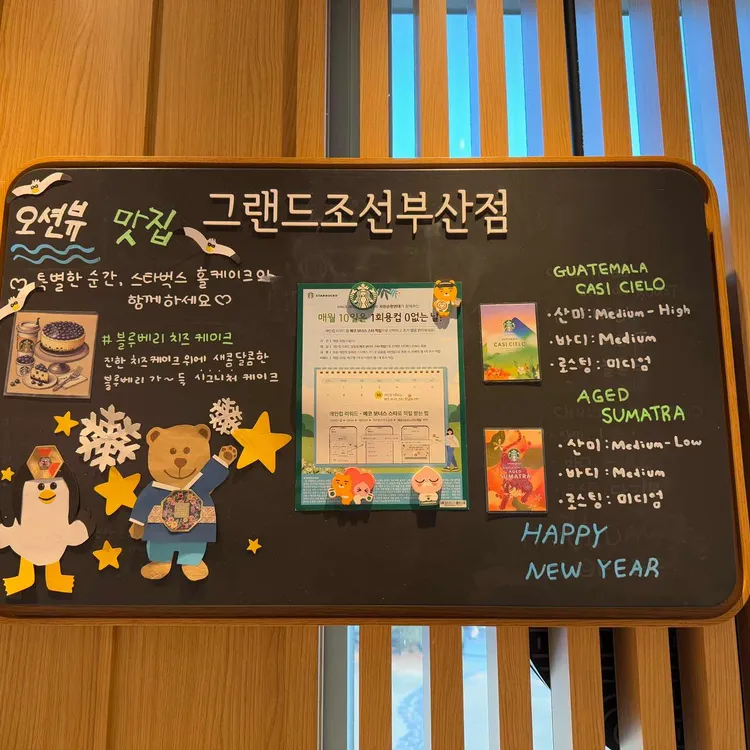 오션뷰 맛집 그랜드조선부산점
♡ 특별한 순간, 스타벅스 홀케이크와
함께하세요♡
#블루베리 치즈 케이크
진한 치즈케이크 위에 새콤달콤한
블루베리 가~득 시그니처 케이크
매월 10일은 1회용컵 0없는 날
개인컵 리워드 - 에코 보너스 스타로 적립 받는 법
GUATEMALA
CASI CIELO
· 산미: Medium-High
· 바디: Medium
· 로스팅: 미디엄
CASI CIELO
AGED
SUMATRA
· 산미: Medium-Low
· 바디: Medium
· 로스팅: 미디엄
AGED
SUMATRA
HAPPY
NEW YEAR